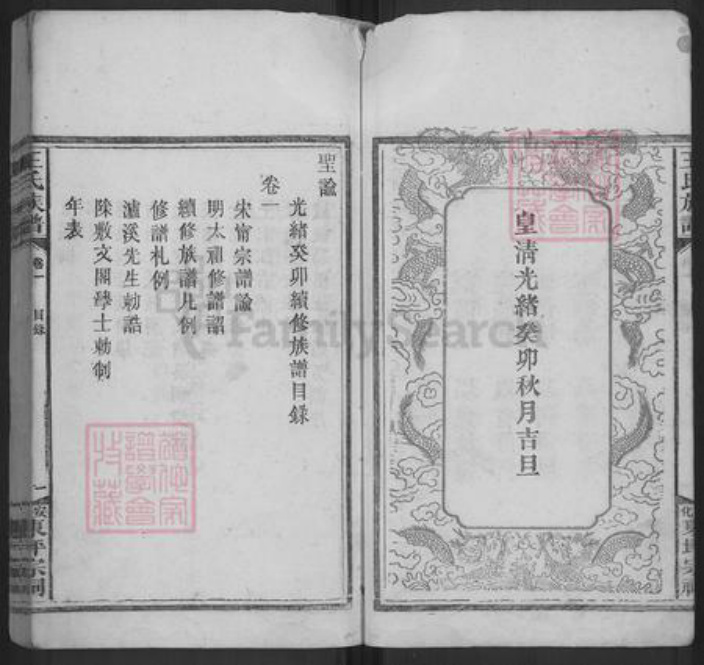 皇清光緒癸卯秋月吉旦
聖諭
光緒癸卯續修族譜目錄
卷一
宋甯宗譜諭
明太祖修譜詔
續修族譜凡例
修譜札例
瀘溪先生勅誥
除敷文閣學士勅制
年表
王氏族譜
卷一
目錄
一
東坪宗祠
FamilySearch